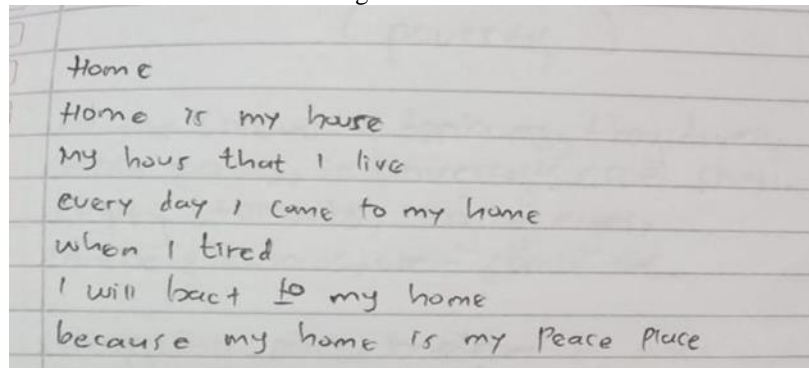 Home
Home is my house
My hous that I live
every day I came to my home
when I tired
I will bact to my home
because my home is my Peace Place